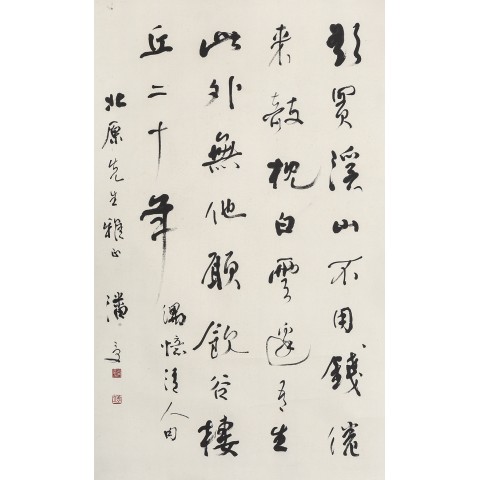 欲買溪山不用錢倦
來敧枕白雲邊吾生
此外無他願飲谷棲
丘二十年
偶憶清人句
北原先生雅正 潘受